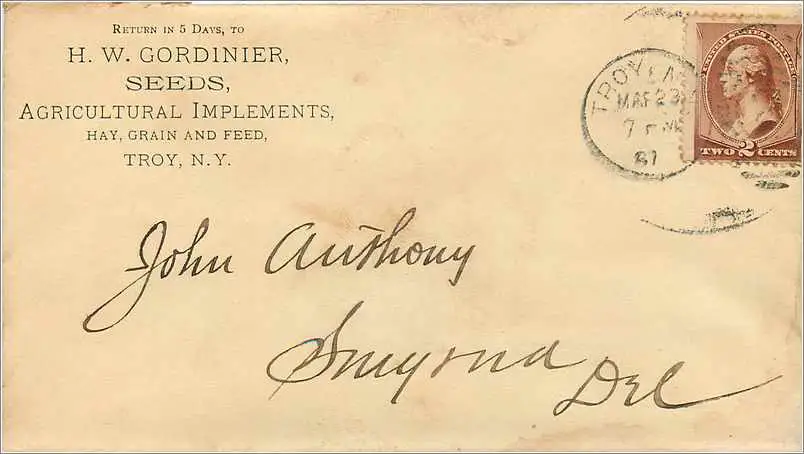 RETURN IN 5 DAYS, TO
H. W. GORDINIER,
SEEDS,
AGRICULTURAL IMPLEMENTS,
HAY, GRAIN AND FEED,
TROY, N.Y.
TROY
MAR 23
7 PM
87
UNITED STATES POSTAGE
TWO 2 CENTS
John Anthony
Smyrna Del